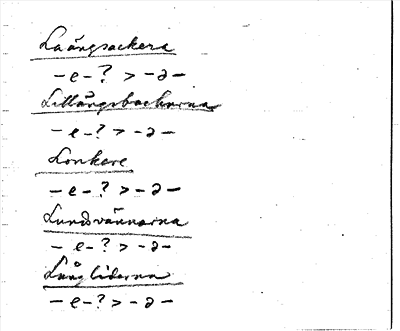 Laängsackera
– e – ? > – ə –
Lillängsbackarna
– e – ? > – ə –
Lonkare
– e – ? > – ə –
Lundsvännarna
– e – ? > – ə –
Långliderna
– e – ? > – ə –